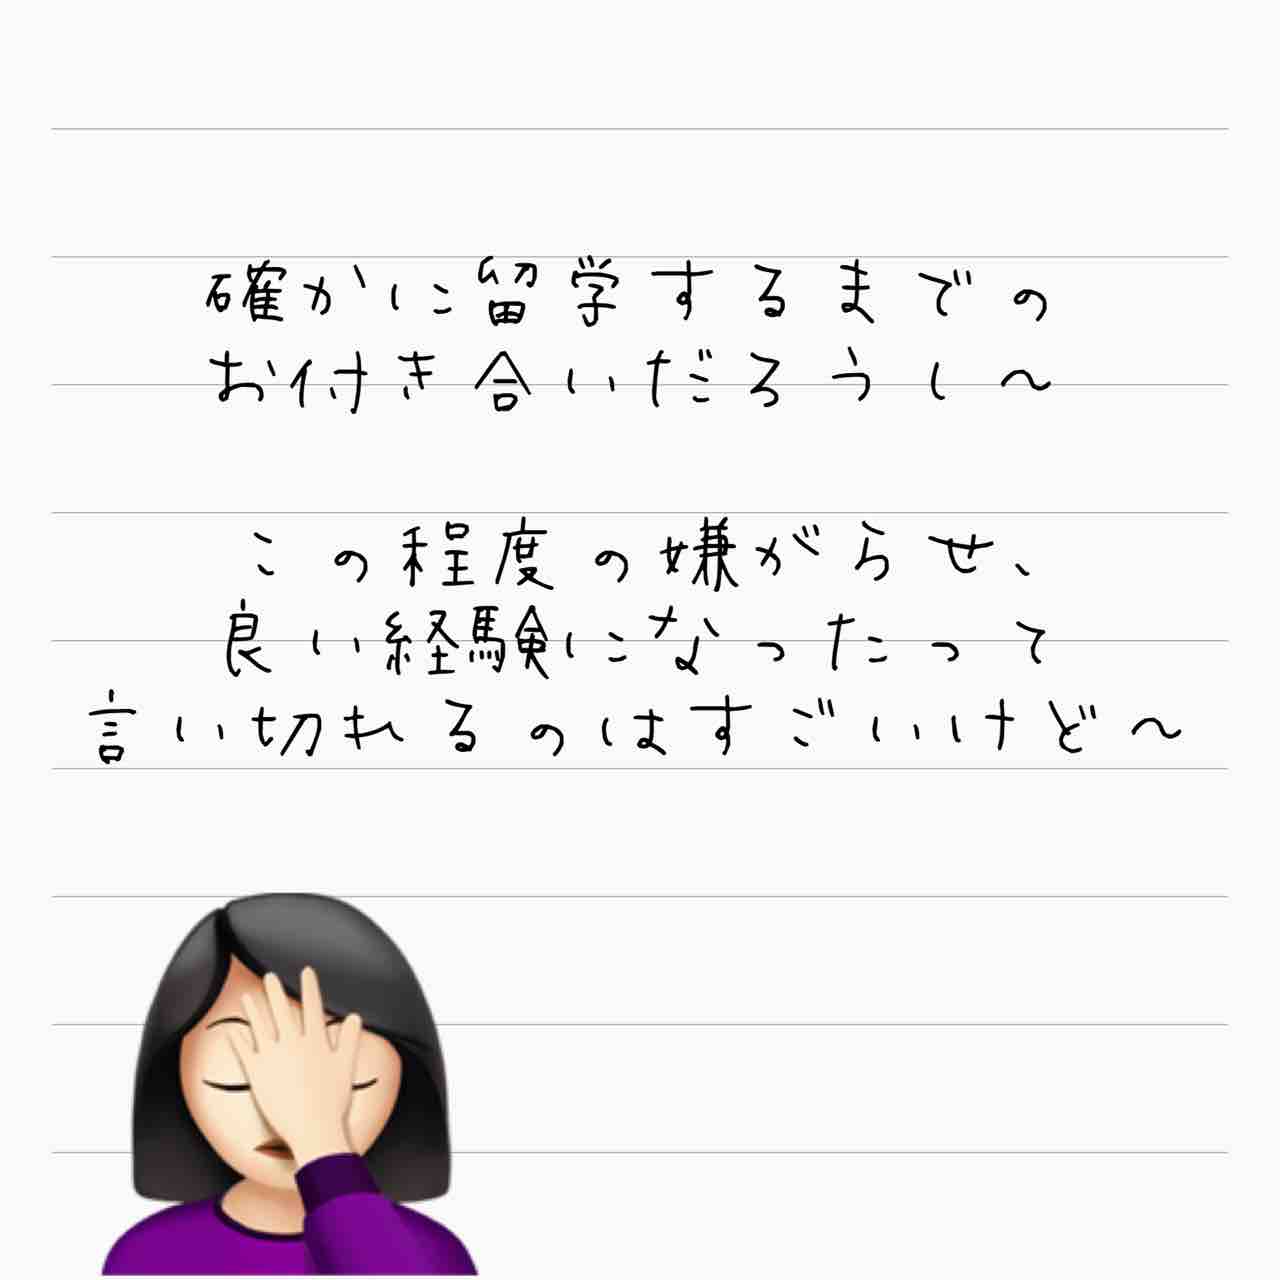 確かに留学するまでの
お付き合いだろうし〜
この程度の嫌がらせ、
良い経験になったって
言い切れるのはすごいけど〜